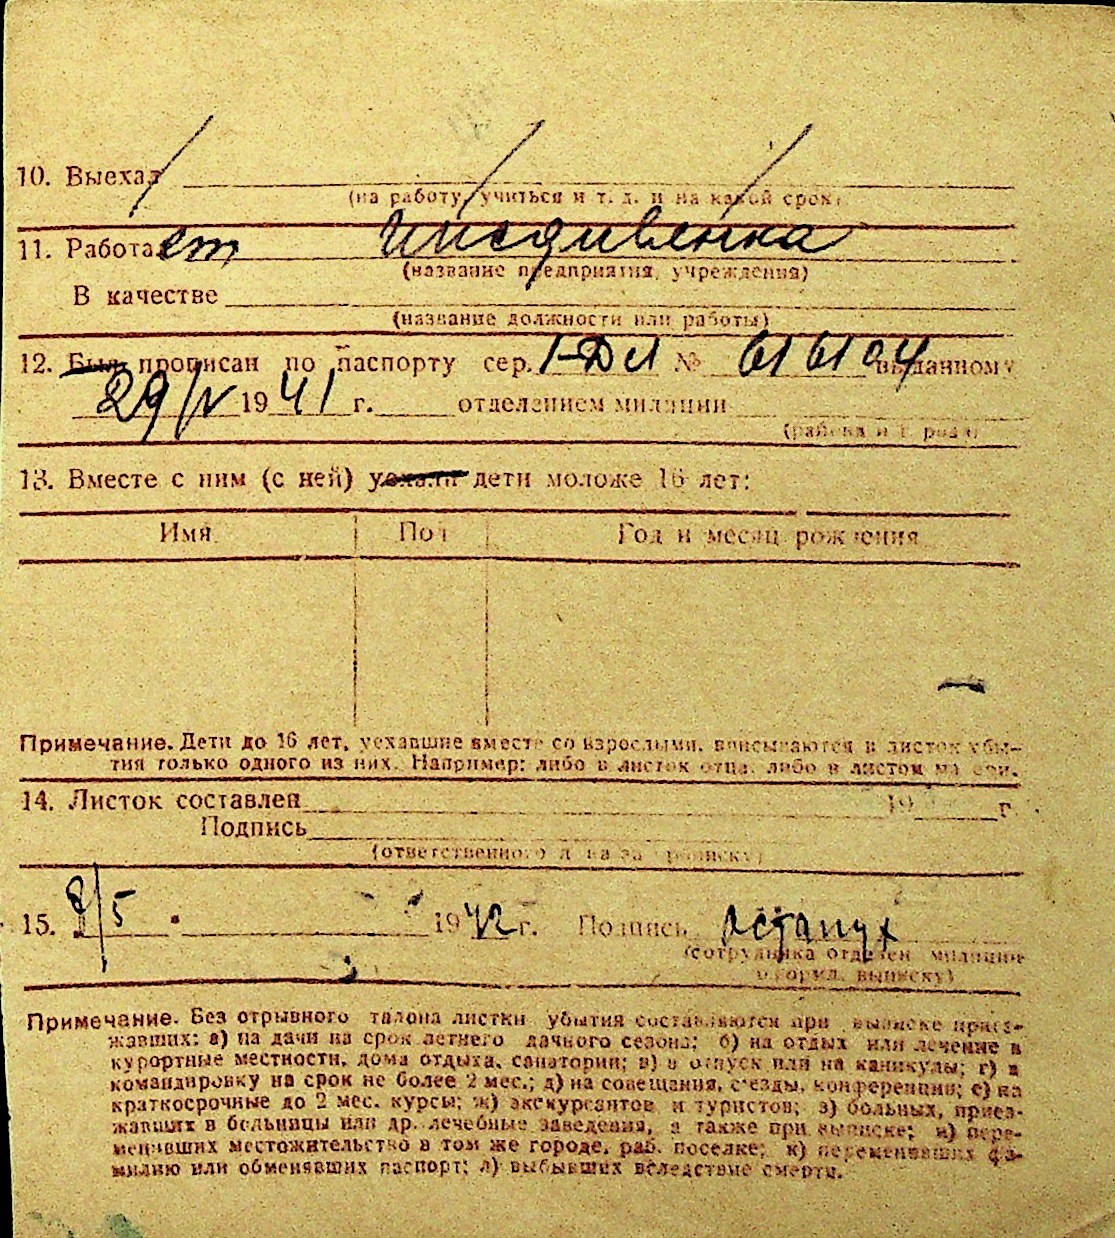 10. Выехал
(на работу, учиться и т. д. и на какой срок)
11. Работает иждивенка
(название предприятия, учреждения)
В качестве
(название должности или работы)
12. Был прописан по паспорту сер. № выданному
29/V 1941 г. отделением милиции
(района и города)
13. Вместе с ним (с ней) уехали дети моложе 16 лет:
Имя Пол Год и месяц рождения
Примечание. Дети до 16 лет, уехавшие вместе со взрослыми, вписываются в листок убы-
тия только одного из них. Например: либо в листок отца, либо в листок матери.
14. Листок составлен 19 г
Подпись
(ответственного лица за прописку)
15. 8/5 1942 г. Подпись
(сотрудника отделен. милиции
оформ. выписку)
Примечание. Без отрывного талона листки убытия составляются при выписке приез-
жавших: а) на дачи на срок летнего дачного сезона; б) на отдых или лечение в
курортные местности, дома отдыха, санатории; в) в отпуск или на каникулы; г) в
командировку на срок не более 2 мес.; д) на совещания, съезды, конференции; е) на
краткосрочные до 2 мес. курсы; ж) экскурсантов и туристов; з) больных, приез-
жавших в больницы или др. лечебные заведения, а также при выписке; и) пере-
менивших местожительство в том же городе, раб. поселке; к) переменивших фа-
милию или обменявших паспорт; л) выбывших вследствие смерти.